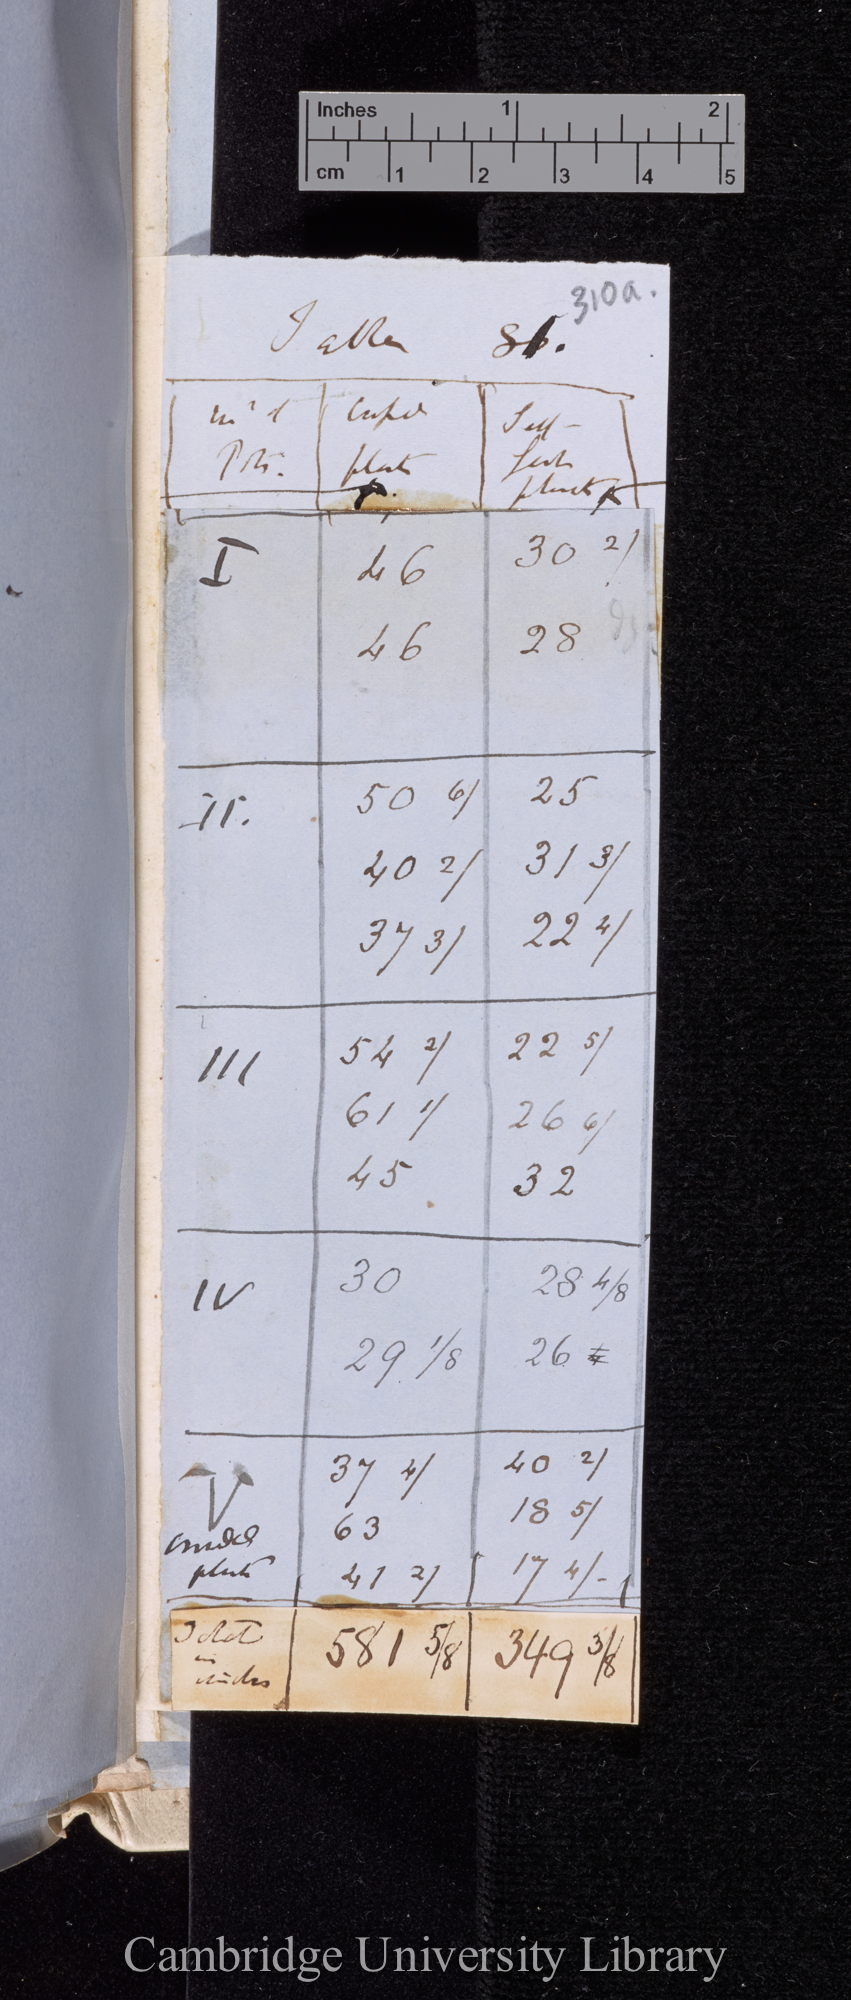 Inches 1 2
cm 1 2 3 4 5
310a.
Table 81.
No of Crossed Self-
Pots. plants fert.
plants
I 46 30 2/
46 28
II. 50 6/ 25
40 2/ 31 3/
37 3/ 22 4/
III 54 2/ 22 5/
61 1/ 26 6/
45 32
IV 30 28 4/8
29 1/8 26
V 37 4/ 40 2/
crowded 63 18 5/
plants 41 2/ 17 4/-
Total 581 5/8 349 3/8
in
inches
Cambridge University Library